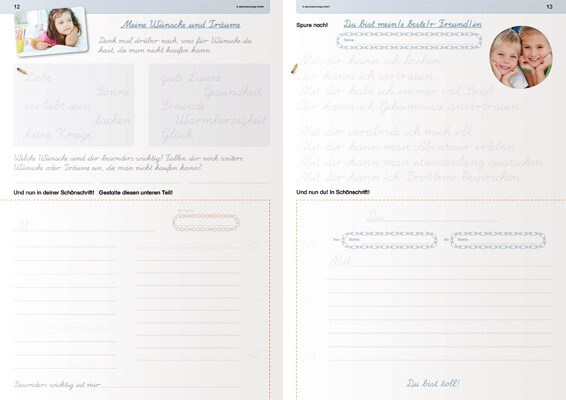 12
Meine Wünsche und Träume
Denk mal drüber nach, was für Wünsche du
hast, die man nicht kaufen kann.
Liebe
Sonne
verliebt sein
lachen
keine Kriege
gute Laune
Gesundheit
Freunde
Warmherzigkeit
Glück
Welche Wünsche sind dir besonders wichtig? Fallen dir noch weitere
Wünsche oder Träume ein, die man nicht kaufen kann?
Und nun in deiner Schönschrift! Gestalte diesen unteren Teil!
M
Besonders wichtig ist mir
13
Spure nach!
Du bist mein/e beste/r Freund/in
Name
Mit dir kann ich lachen
Dir kann ich vertrauen
Mit dir habe ich immer viel Spaß
Dir kann ich Geheimnisse anvertrauen
Mit dir verstehe ich mich oft
Mit dir kann man Abenteuer erleben
Mit dir kann man stundenlang quatschen
Mit dir kann ich Probleme besprechen
Und nun du! In Schönschrift!
Du
Von Name
An Name
Mit
Du bist toll!